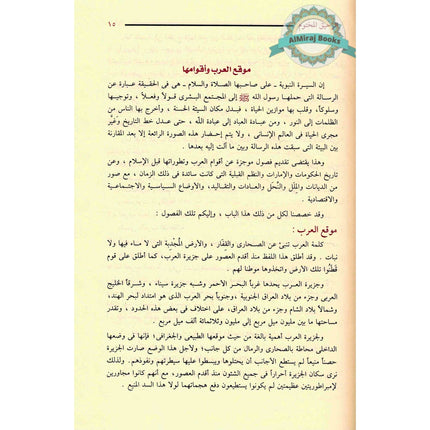 ١٥
الرحيق المختوم
AlMiraj Books
موقع العرب وأقوامها
إن السيرة النبوية ـ على صاحبها الصلاة والسلام ـ هى فى الحقيقة عبارة عن
الرسالة التى حملها رسول الله ﷺ إلى المجتمع البشرى قولاً وفعلاً ، وتوجيها
وسلوكاً، وقلب بها موازين الحياة ، فبدل مكان السيئة الحسنة ، وأخرج بها الناس من
الظلمات إلى النور ، ومن عبادة العباد إلى عبادة الله ، حتى عدل خط التاريخ وغيَّر
مجرى الحياة فى العالم الإنسانى ، ولا يتم إحضار هذه الصورة الرائعة إلا بعد المقارنة
بين البيئة التى سبقت هذه الرسالة وبين ما آلت إليه بعدها .
وهذا يقتضى تقديم فصول موجزة عن أقوام العرب وتطوراتها قبل الإسلام ، وعن
تاريخ الحكومات والإمارات والنظم القبلية التى كانت سائدة فى ذلك الزمان ، مع صور
من الديانات والمِلَل والنِّحَل والعادات والتقاليد، والأوضاع السياسية والاجتماعية
والاقتصادية .
وقد خصصنا لكل من ذلك هذا الباب ، وإليكم تلك الفصول :
موقع العرب :
كلمة العرب تنبئ عن الصحارى والقفار ، والأرض المُجْدِبة التى لا ماء فيها ولا
نبات . وقد أطلق هذا اللفظ منذ أقدم العصور على جزيرة العرب، كما أطلق على قوم
قَطَنُوا تلك الأرض واتخذوها موطنا لهم .
وجزيرة العرب يحدها غرباً البحر الأحمر وشبه جزيرة سيناء ، وشرقاً الخليج
العربى وجزء من بلاد العراق الجنوبية ، وجنوباً بحر العرب الذى هو امتداد لبحر الهند،
وشمالاً بلاد الشام وجزء من بلاد العراق، على اختلاف فى بعض هذه الحدود ، وتقدر
مساحتها ما بين مليون ميل مربع إلى مليون وثلاثمائة ألف ميل مربع .
ولجزيرة العرب أهمية بالغة من حيث موقعها الطبيعى والجغرافى؛ فإنها فى وضعها
الداخلى محاطة بالصحارى والرمال من كل جانب؛ ولأجل هذا الوضع صارت الجزيرة
حصناً منيعاً لم يستطع الأجانب أن يحتلوها ويبسطوا عليها سيطرتهم ونفوذهم . ولذلك
نرى سكان الجزيرة أحراراً فى جميع الشئون منذ أقدم العصور، مع أنهم كانوا مجاورين
لإمبراطوريتين عظيمتين لم يكونوا يستطيعون دفع هجماتهما لولا هذا السد المنيع .